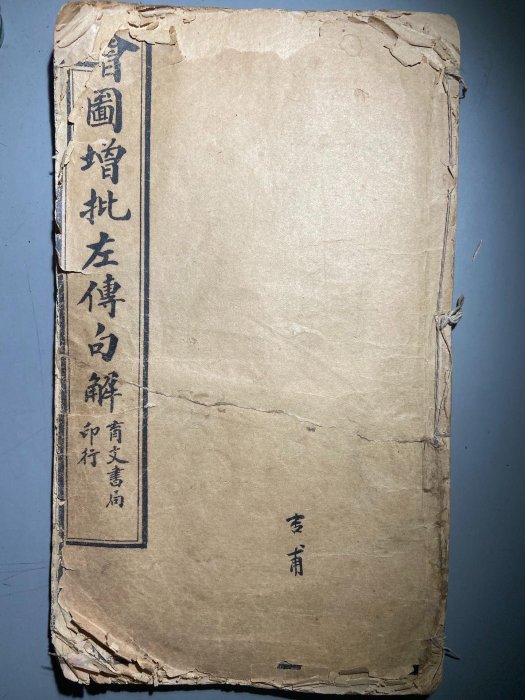 會圖增批左傳句解
育文書局
印行
吉甫